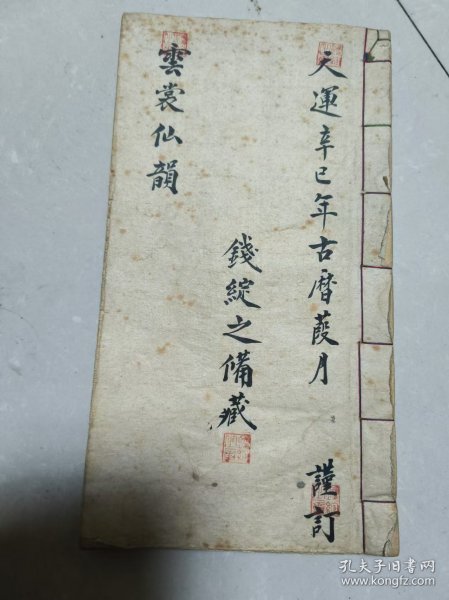 天運辛巳年古曆葭月
謹訂
錢綻之備藏
雲裳仙韻
孔夫子旧书网
www.kongfz.com